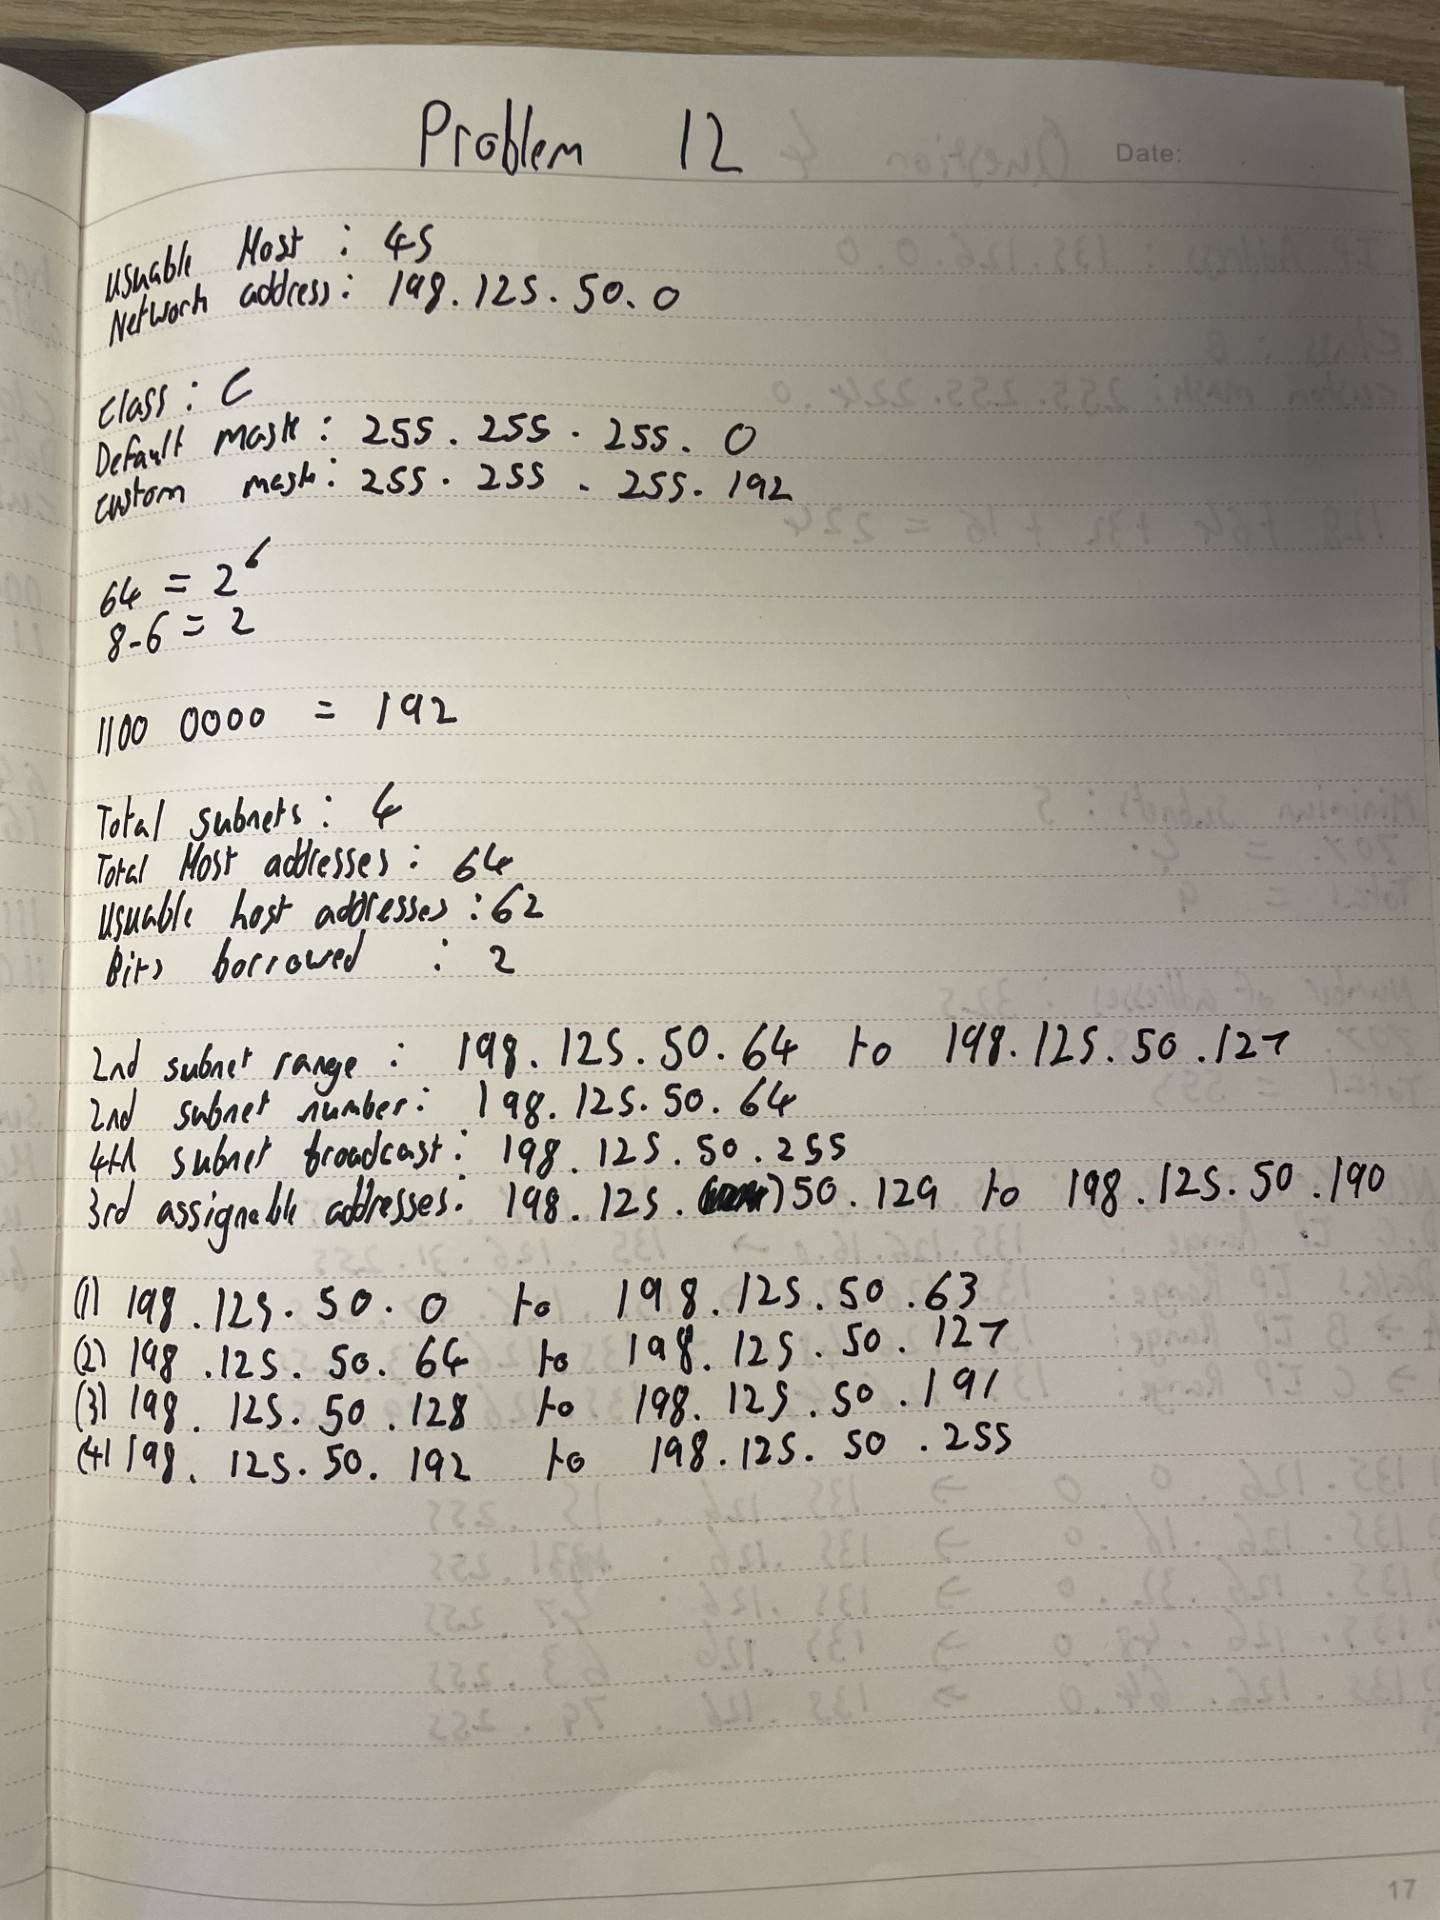 Problem 12
Date:
Usuable Host : 45
Network address : 198.125.50.0
Class : C
Default mask : 255.255.255.0
custom mask : 255.255.255.192
64 = 2^6
8-6 = 2
1100 0000 = 192
Total subnets : 4
Total Host addresses : 64
Usuable host addresses : 62
Bits borrowed : 2
2nd subnet range : 198.125.50.64 to 198.125.50.127
2nd subnet number : 198.125.50.64
4th subnet broadcast : 198.125.50.255
3rd assignable addresses : 198.125.50.129 to 198.125.50.190
(1) 198.125.50.0 to 198.125.50.63
(2) 198.125.50.64 to 198.125.50.127
(3) 198.125.50.128 to 198.125.50.191
(4) 198.125.50.192 to 198.125.50.255
17